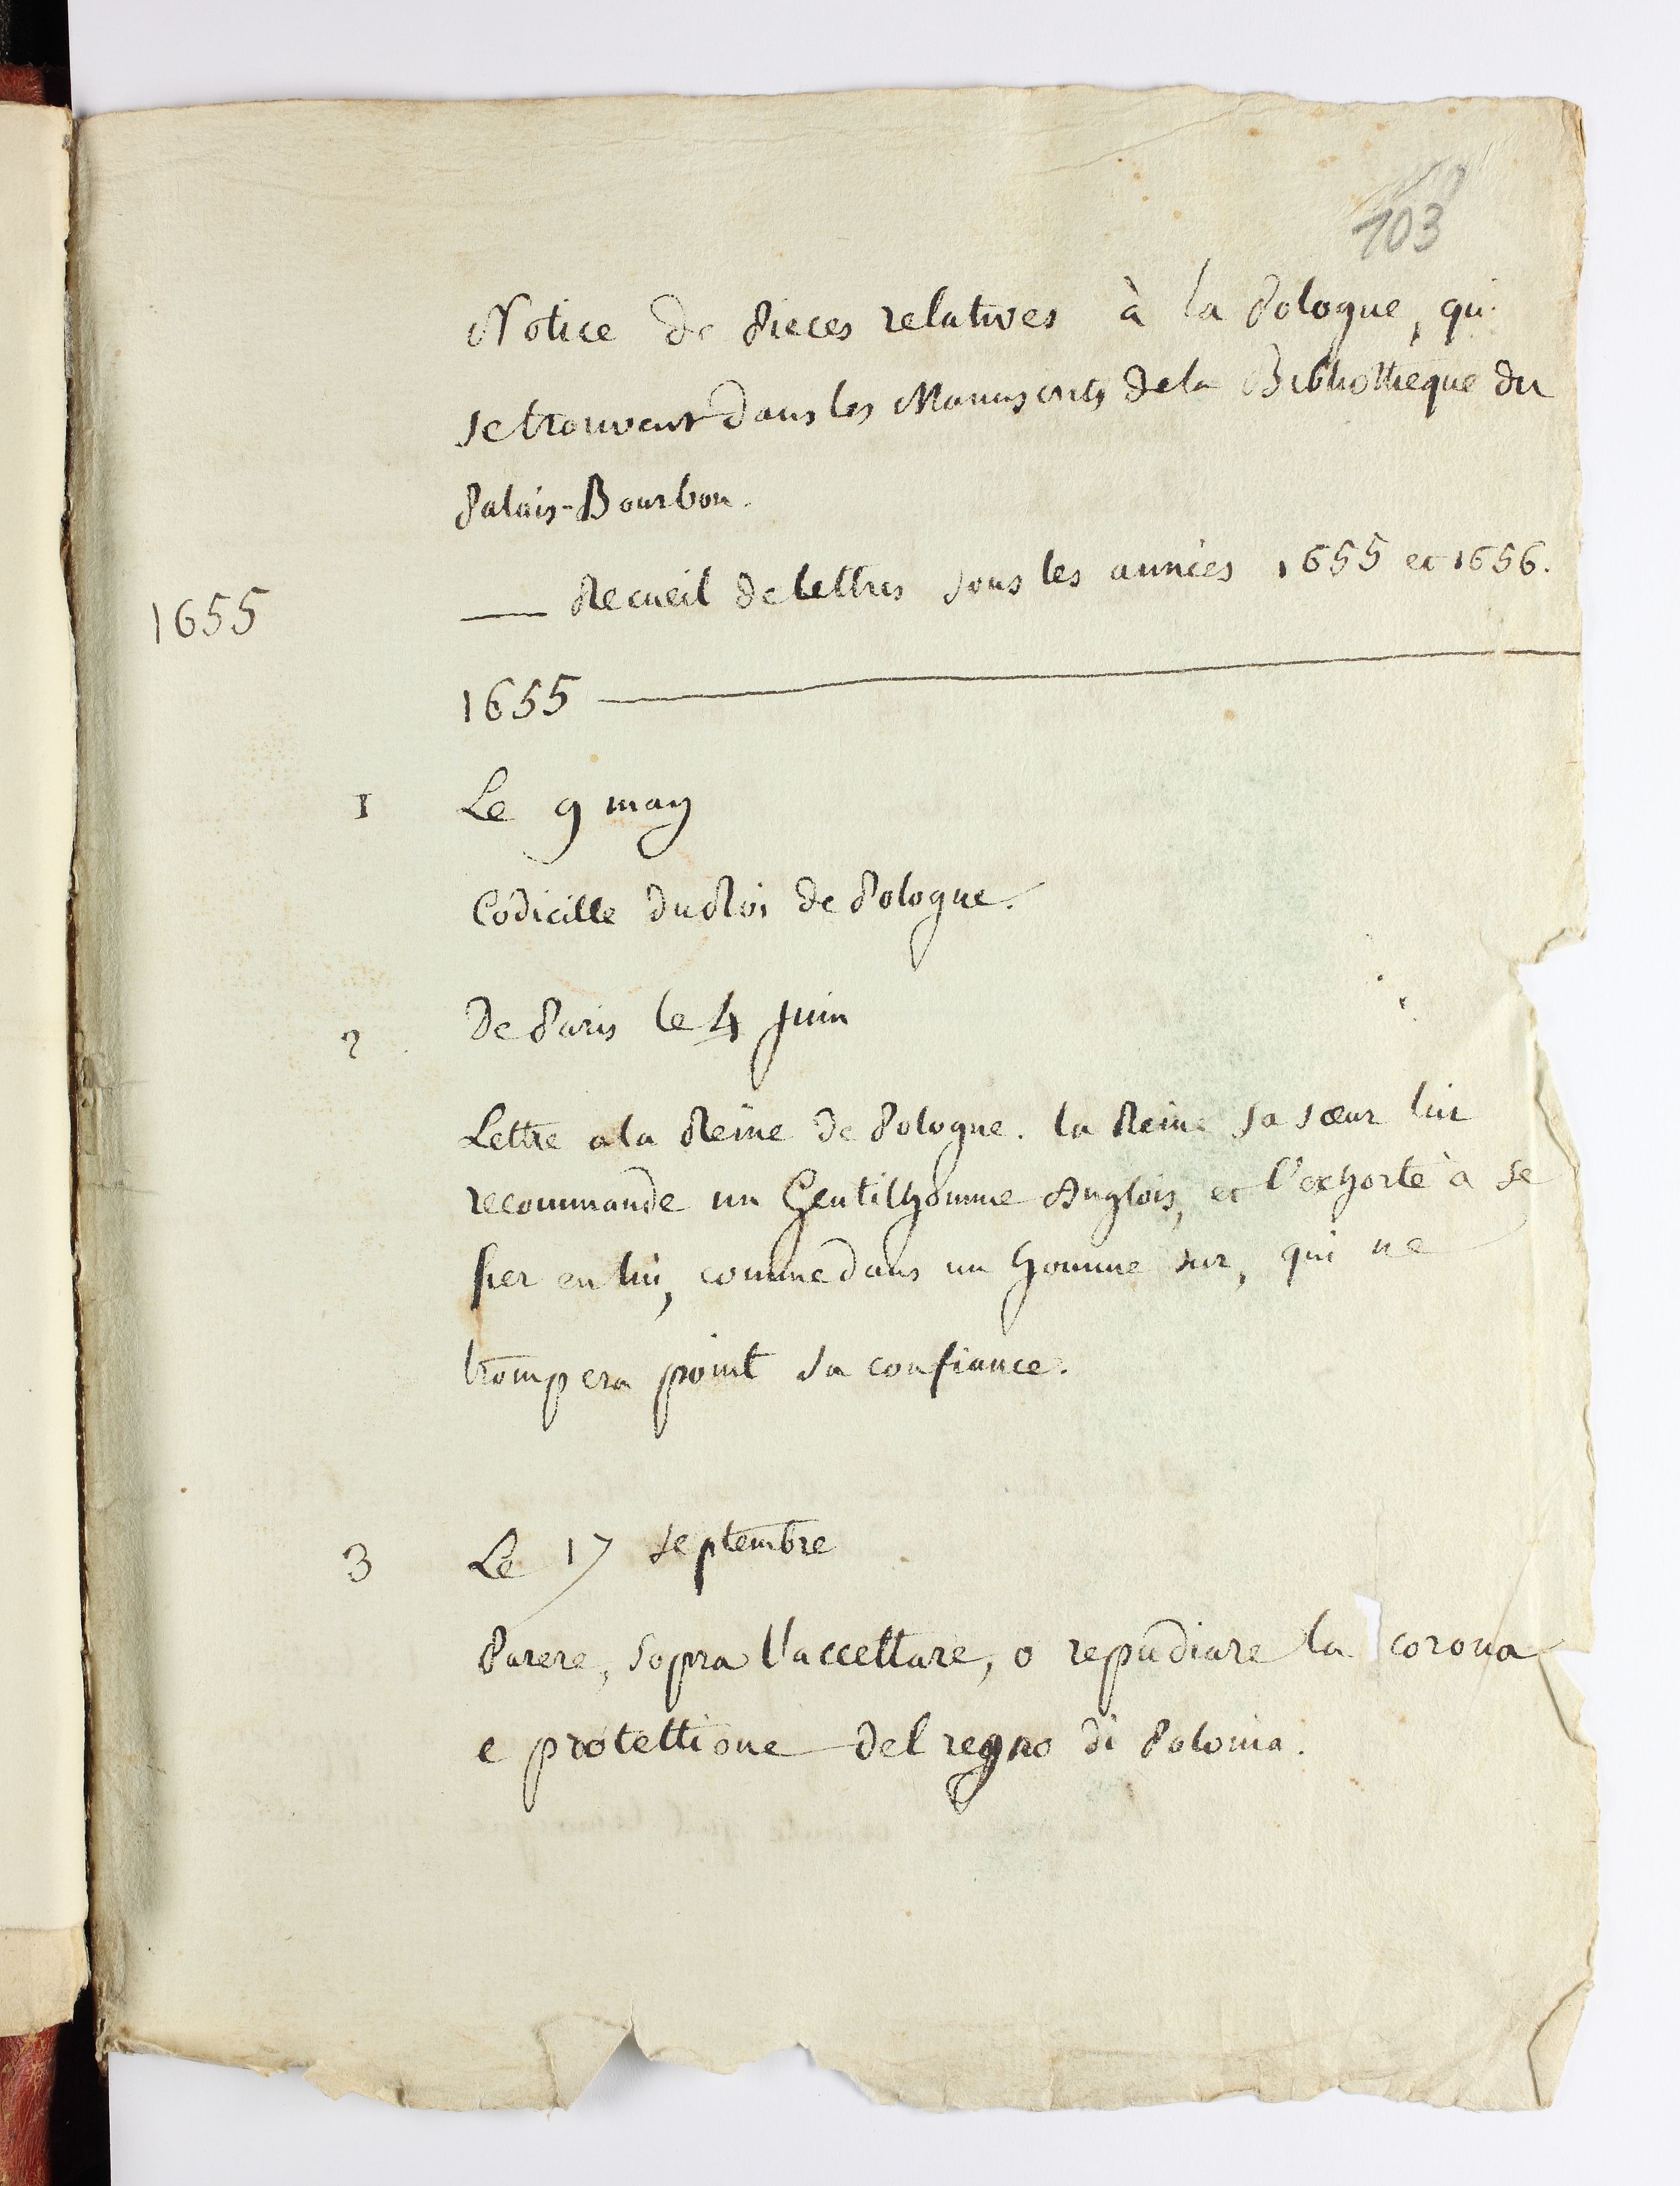 103
Notice de Pieces relatives à la Pologne, qui
se trouvent dans les Manuscrits de la Bibliotheque du
Palais-Bourbon.
1655 — Recueil de lettres sous les années 1655 et 1656.
1655 —
1 Le 9 may
Codicille du Roi de Pologne.
2 De Paris le 4 Juin
Lettre a la Reine de Pologne. la Reine sa sœur lui
recommande un Gentilhomme Anglois, et l'exhorte à se
fier en lui, comme dans un homme sur, qui ne
trompera point sa confiance.
3 Le 17 septembre
Parere, sopra l'accettare, o repudiare la corona
e protettione del regno di Polonia.